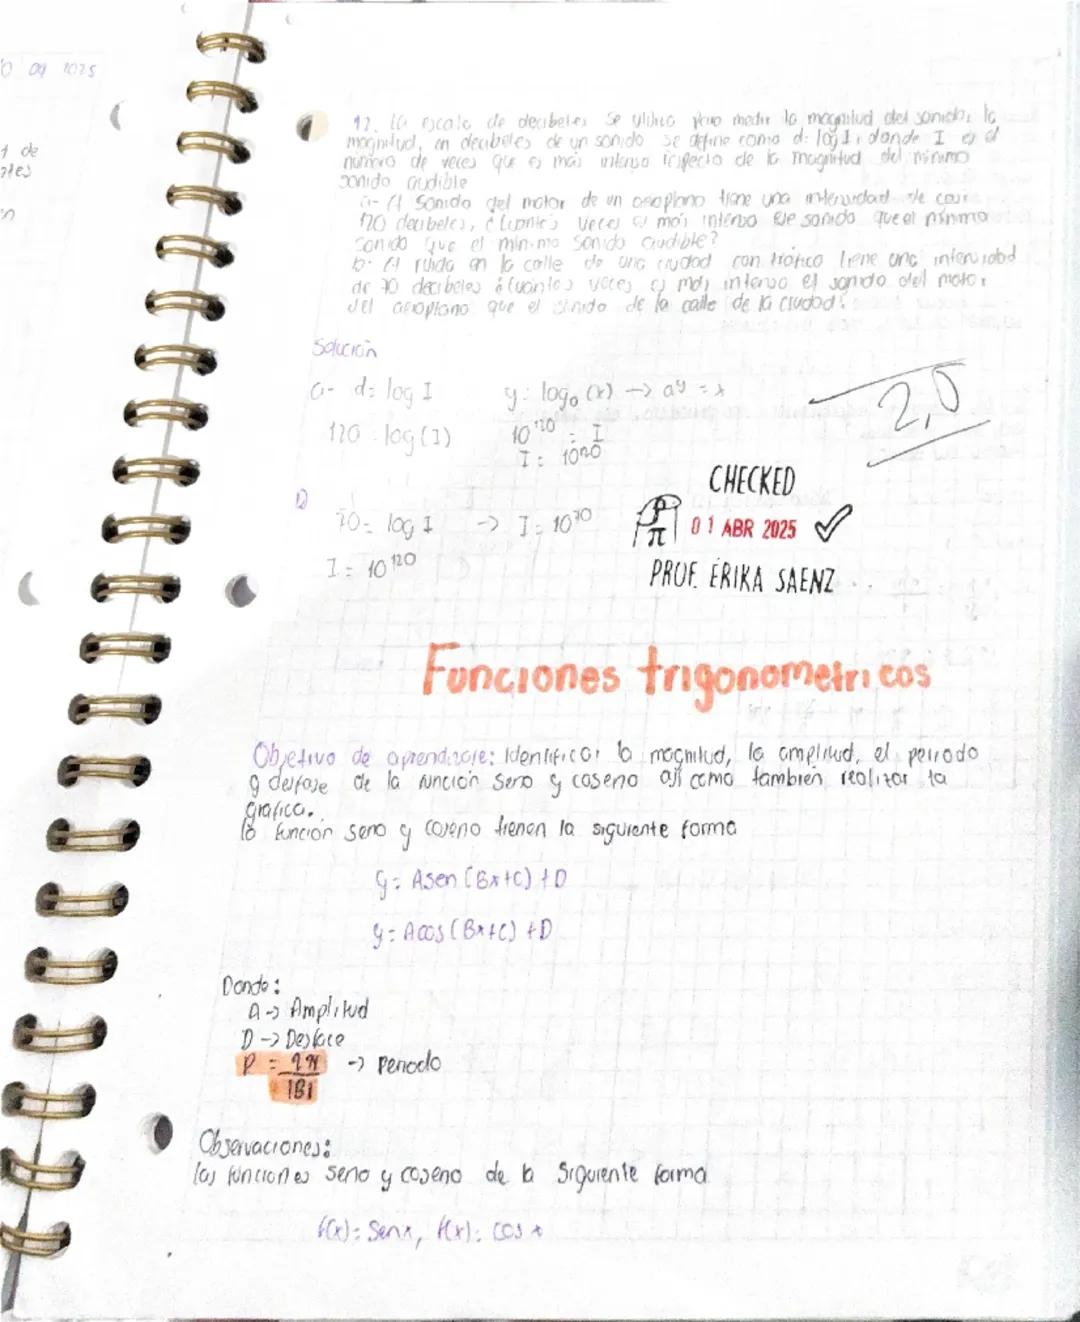 0 09 2025
de
12. La escala de decibeles se utiliza para medir la magnitud del sonido, la
magnitud, en decibeles de un sonido se define como d= log I, donde I es el
número de veces que es más intenso respecto de la magnitud del mínimo
sonido audible
a- El sonido del motor de un aeroplano tiene una intensidad de casi
120 decibeles, ¿Cuántas veces es más intenso ese sonido que el mínimo
sonido que el mínimo sonido audible?
b- El ruido en la calle de una ciudad con tráfico tiene una intensidad
de 70 decibeles ¿cuántas veces es más intenso el sonido del motor
del aeroplano que el sonido de la calle de la ciudad?
Solución
a- d= log I y= logₐ (x) → aʸ = x
120 = log(I) 10¹²⁰ = I
I= 10¹²⁰
2,0
CHECKED
b
70= log I → I= 10⁷⁰
01 ABR 2025
I= 10¹²⁰
PROF. ERIKA SAENZ
Funciones trigonometricas
Objetivo de aprendizaje: Identificar la magnitud, la amplitud, el periodo
y desfase de la función seno y coseno así como también realizar la
grafica.
la función seno y coseno tienen la siguiente forma
y= Asen (Bx+C) +D
y= Acos (Bx+C) +D
Donde:
A→ Amplitud
D→ Desface
P = 2π/|B| → Periodo
Observaciones:
las funciones seno y coseno de la siguiente forma
f(x)= Senx, f(x)= cos x